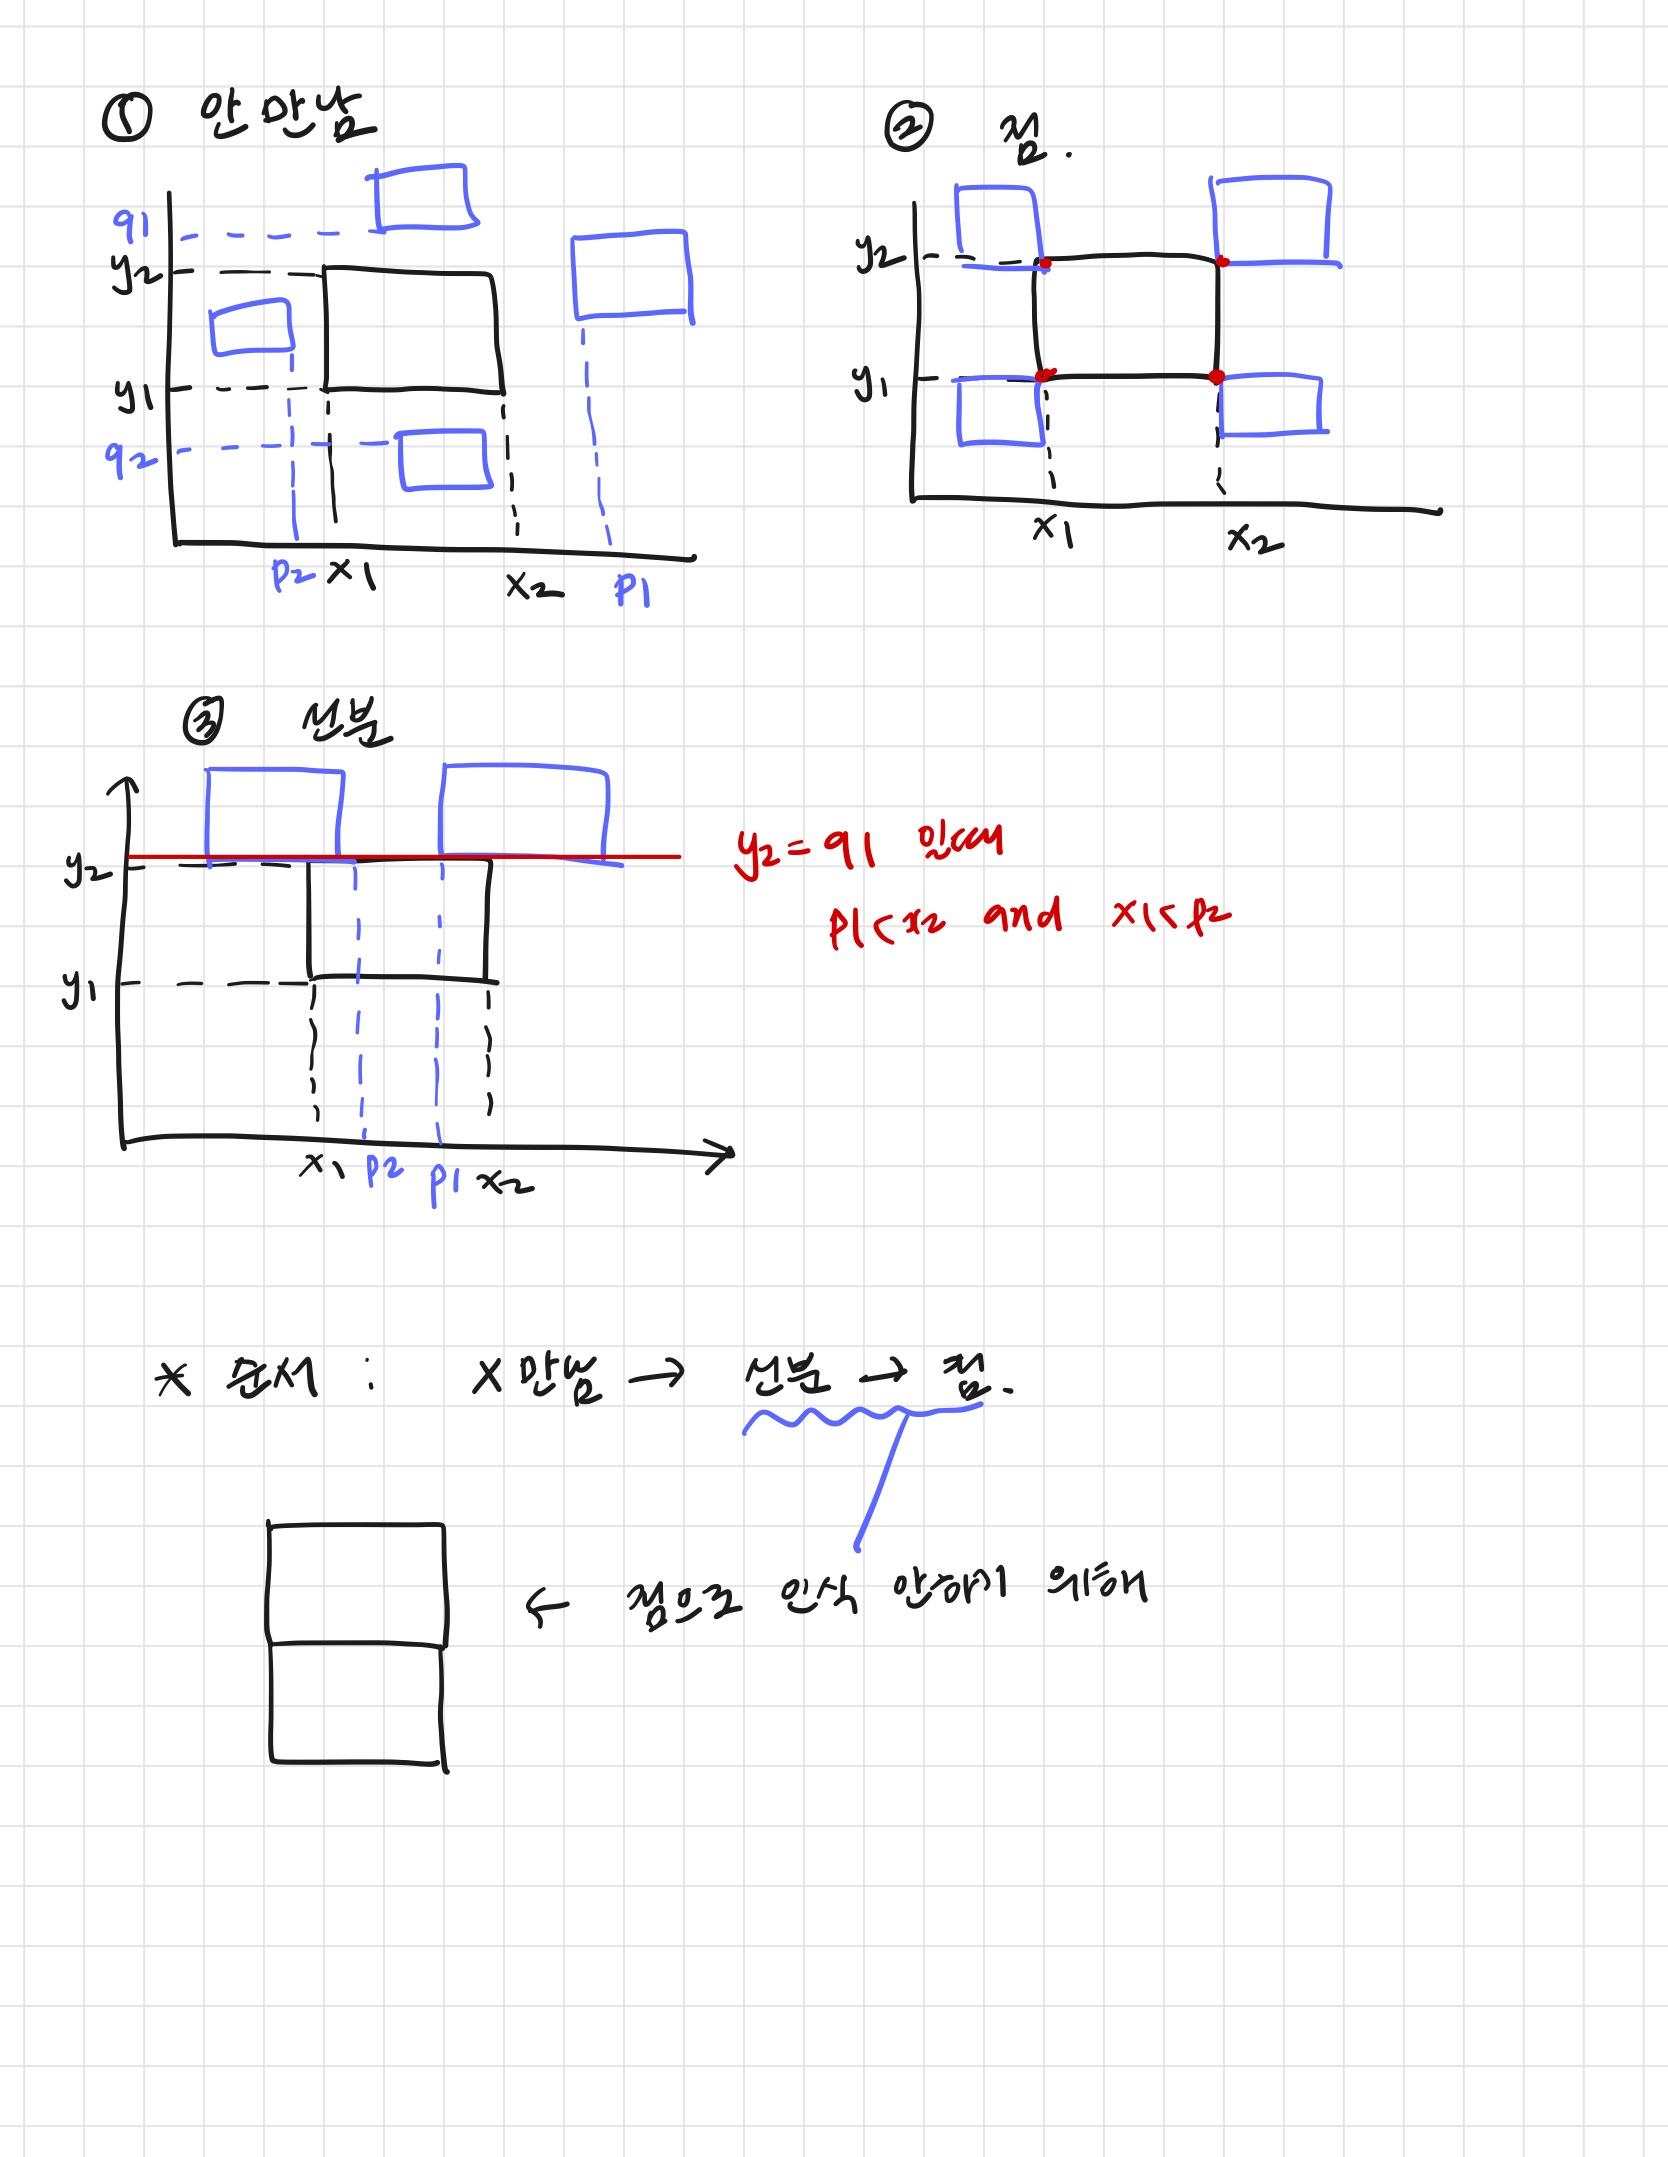 ① 안 만남
q1
y2
y1
q2
p2 x1 x2 p1
② 점.
y2
y1
x1 x2
③ 선분
y2
y1
x1 p2 p1 x2
y2 = q1 인 때
p1 < x2 and x1 < p2
* 순서 : X 만남 → 선분 → 점.
← 점으로 인식 안하기 위해